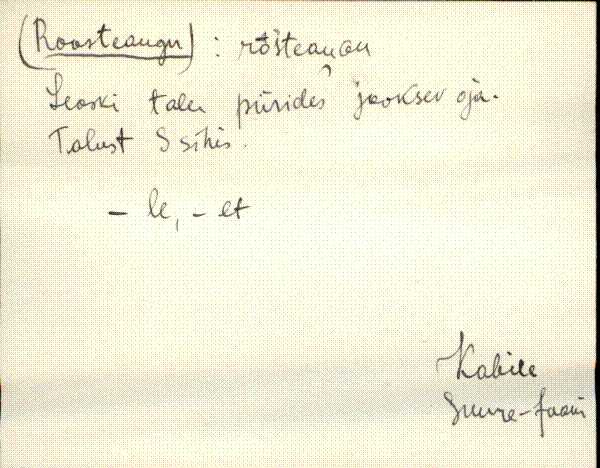 (Roosteaugu) : rošteauGu
Seoski talu piirides jooksev oja.
Talust S sihis.
- le, - et
Kabile
Suure-Jaani